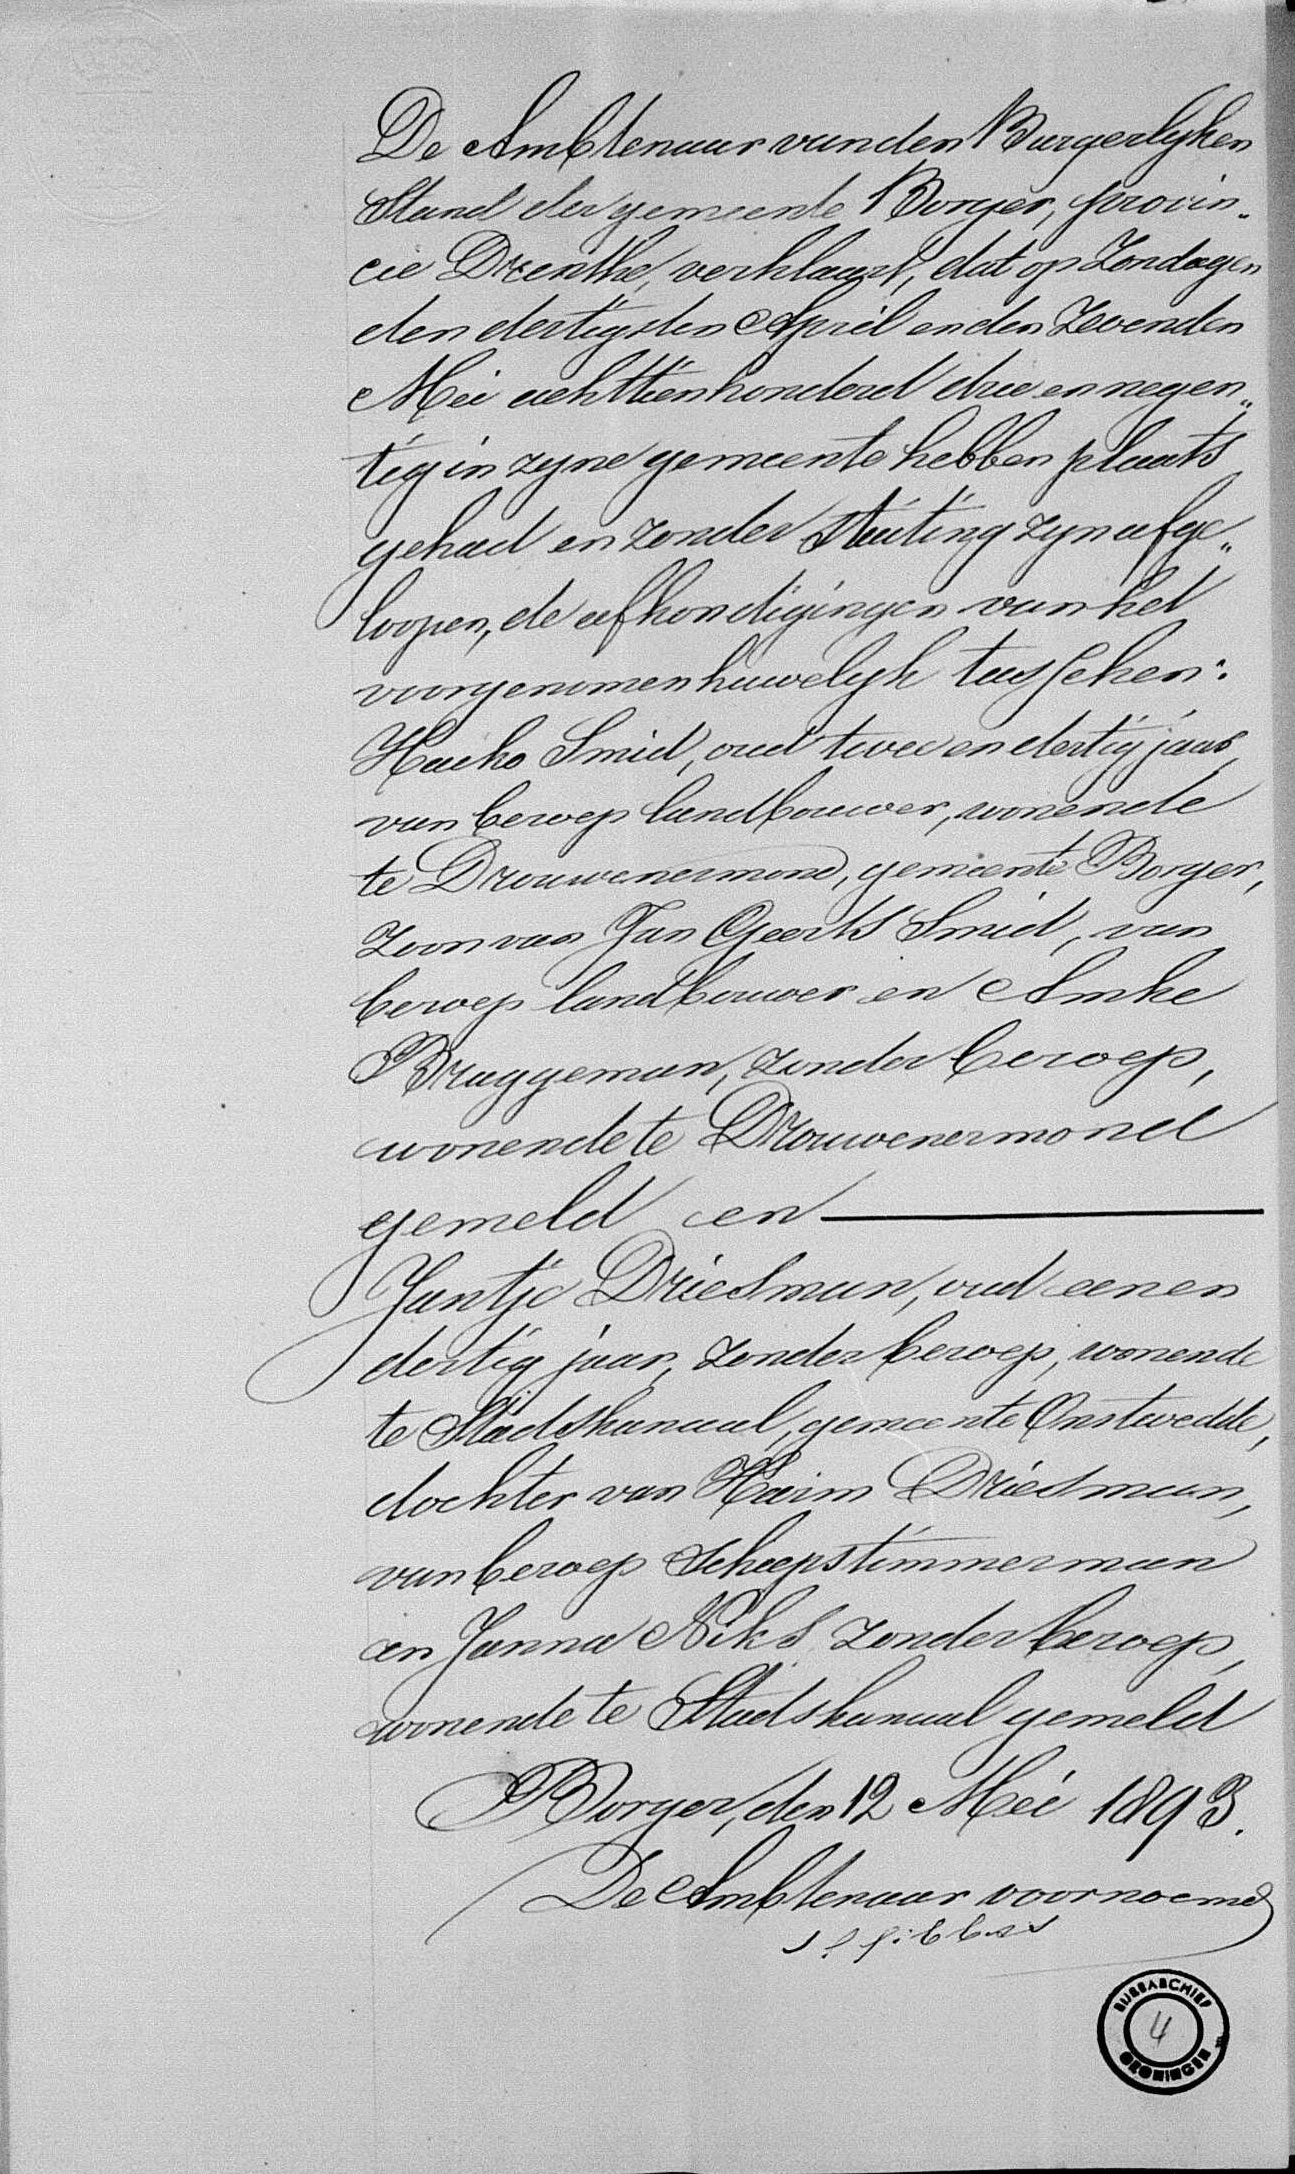 De Ambtenaar van den Burgerlyken
Stand der gemeente Borger, provin„
cie Drenthe, verklaart, dat op Zondagen
den dertigsten April en den Zevenden
Mei achttienhonderd drie en negen„
tig in zyne gemeente hebben plaats
gehad en zonder stuiting zyn afge„
loopen, de afkondigingen van het
voorgenomen huwelyk tusschen:
Haiko Smid, oud twee en dertig jaar,
van beroep landbouwer, wonende
te Drouwenermond, gemeente Borger,
zoon van Jan Geerts Smid, van
beroep landbouwer en Amke
Bruggeman, zonder beroep,
wonende te Drouwenermond
gemeld en
Jantje Driesman, oud een en
dertig jaar, zonder beroep, wonende
te Stadskanaal, gemeente Onstwedde,
dochter van Harm Driesman,
van beroep scheepstimmerman
en Janna Niks, zonder beroep,
wonende te Stadskanaal gemeld
Borger, den 12 Mei 1893.
De Ambtenaar voornoemd
RIJKSARCHIEF
4
GRONINGEN